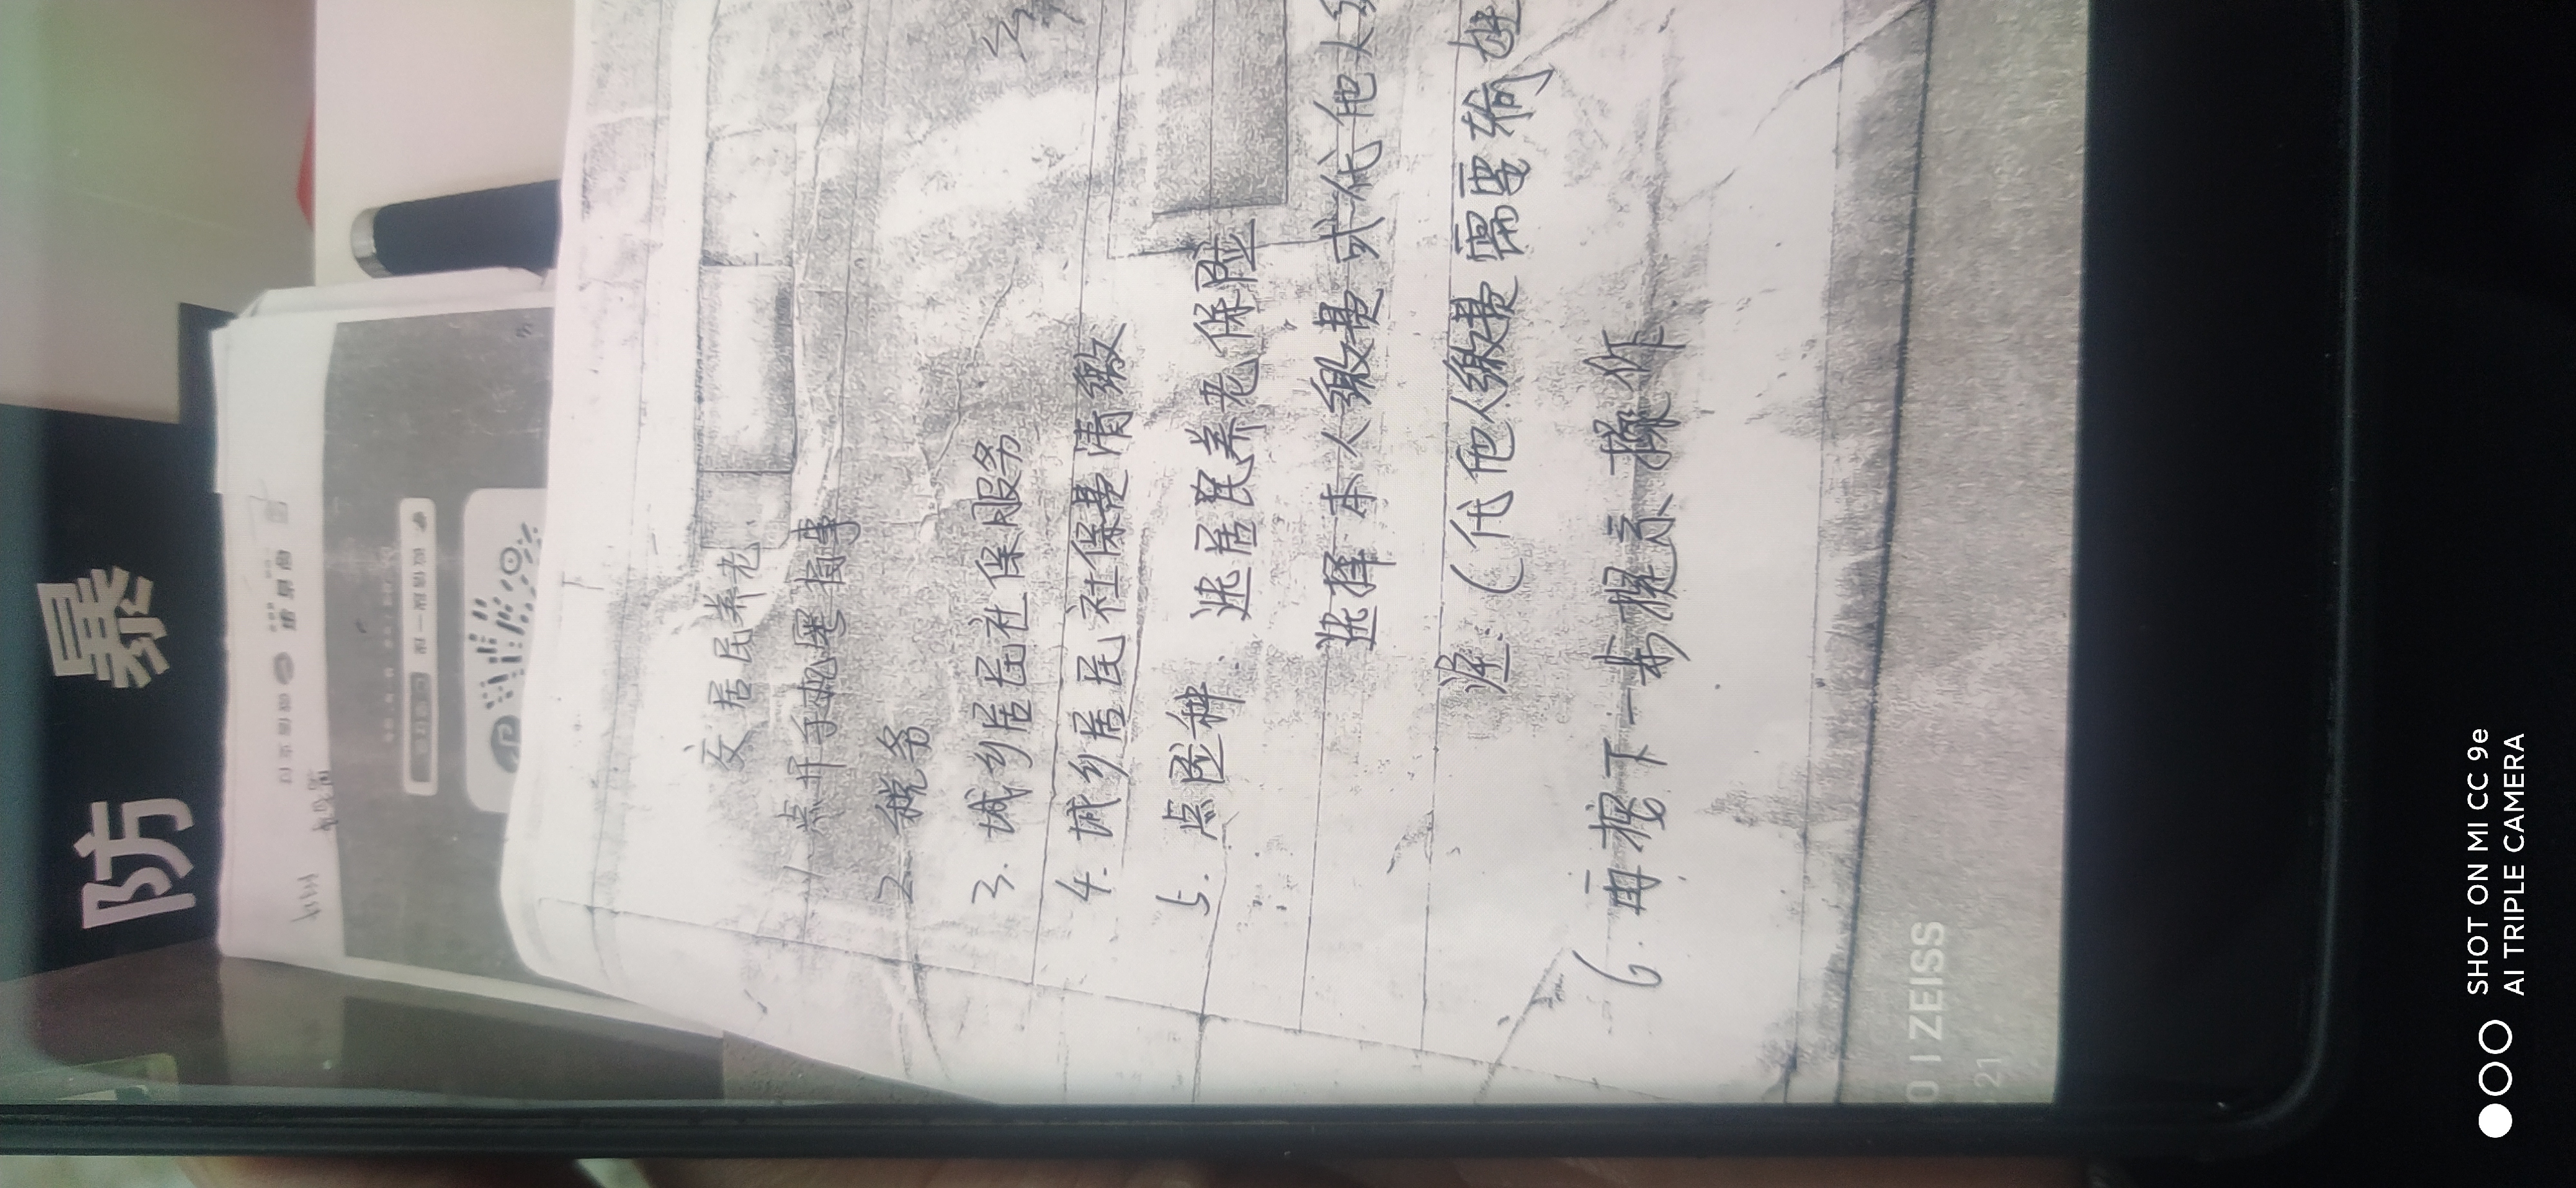 防 暴
交居民养老
1. 点开手机粤省事
2. 税务
3. 城乡居民社保服务
4. 城乡居民社保费清缴
5. 点险种 选居民养老保险
选择本人缴费或代他人
注:(代他人缴费需要输
6. 再按下一步提示操作
0 | ZEISS
21
SHOT ON MI CC 9e
AI TRIPLE CAMERA